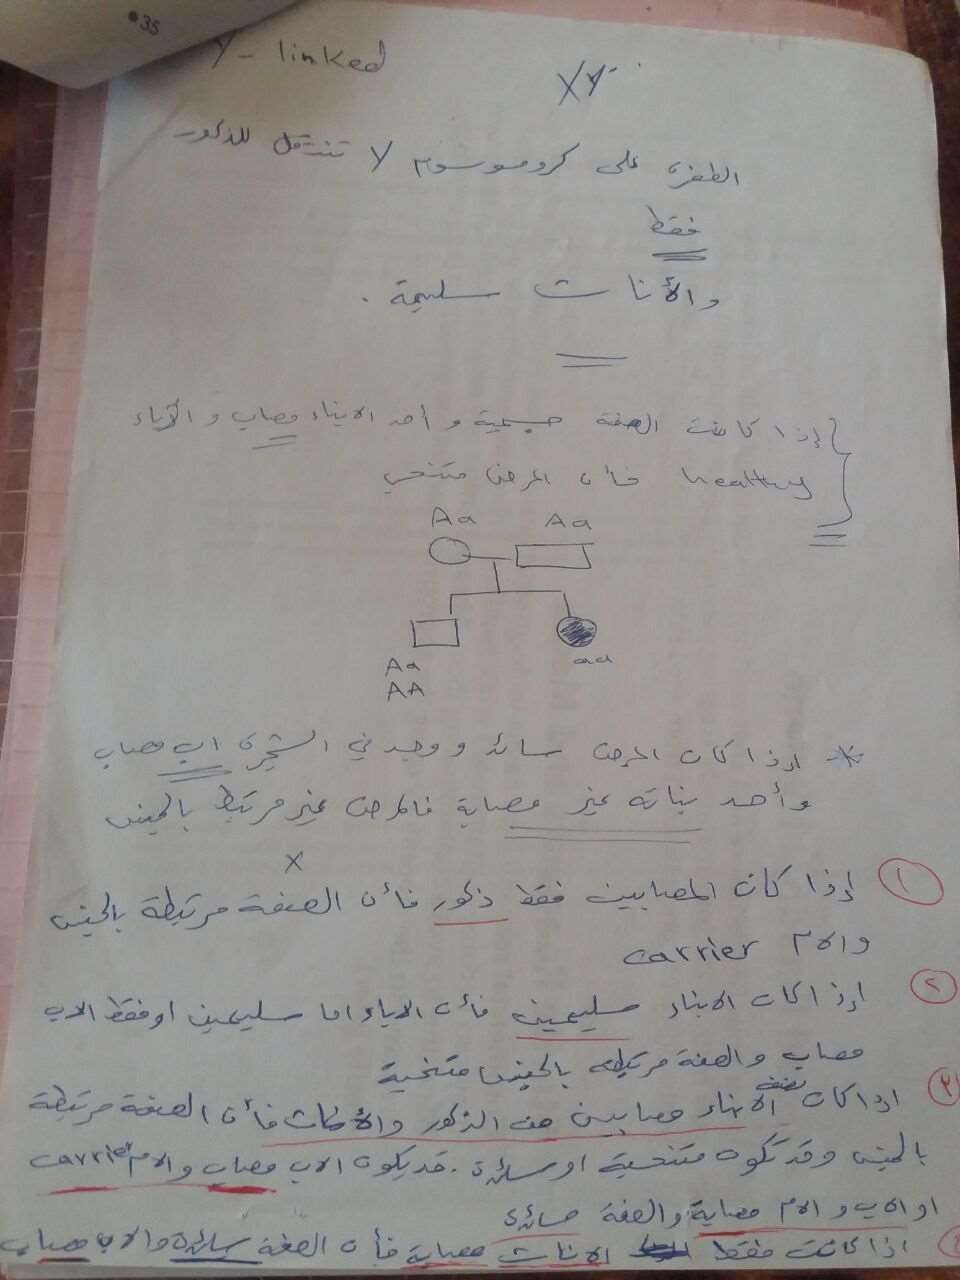 #35
Y - linked
XY
الطفرة على كروموسوم Y تنتقل للذكور
فقط
والأناث سليمة .
إذا كانت الصفة جسمية و أحد الابناء مصاب و الآباء
healthy فأن المرض متنحي
Aa Aa
Aa aa
AA
* اذا كان المرض سائد و وجد في الشجرة اب مصاب
وأحد بناته غير مصابة فالمرض غير مرتبط بالجنس
X
١ إذا كان المصابين فقط ذكور فأن الصفة مرتبطة بالجنس
والام carrier
٢ اذا كان الابناء سليمين فأن الاباء اما سليمين او فقط الاب
مصاب والصفة مرتبطة بالجنس متنحية
٣ اذا كان نصف الابناء مصابين من الذكور والأناث فأن الصفة مرتبطة
بالجنس وقد تكون متنحية او سائدة . قد يكون الاب مصاب والام carrier
او الاب و الام مصابة والصفة سائدة
٤ اذا كانت فقط الاناث مصابة فأن الصفة سائدة والاب مصاب